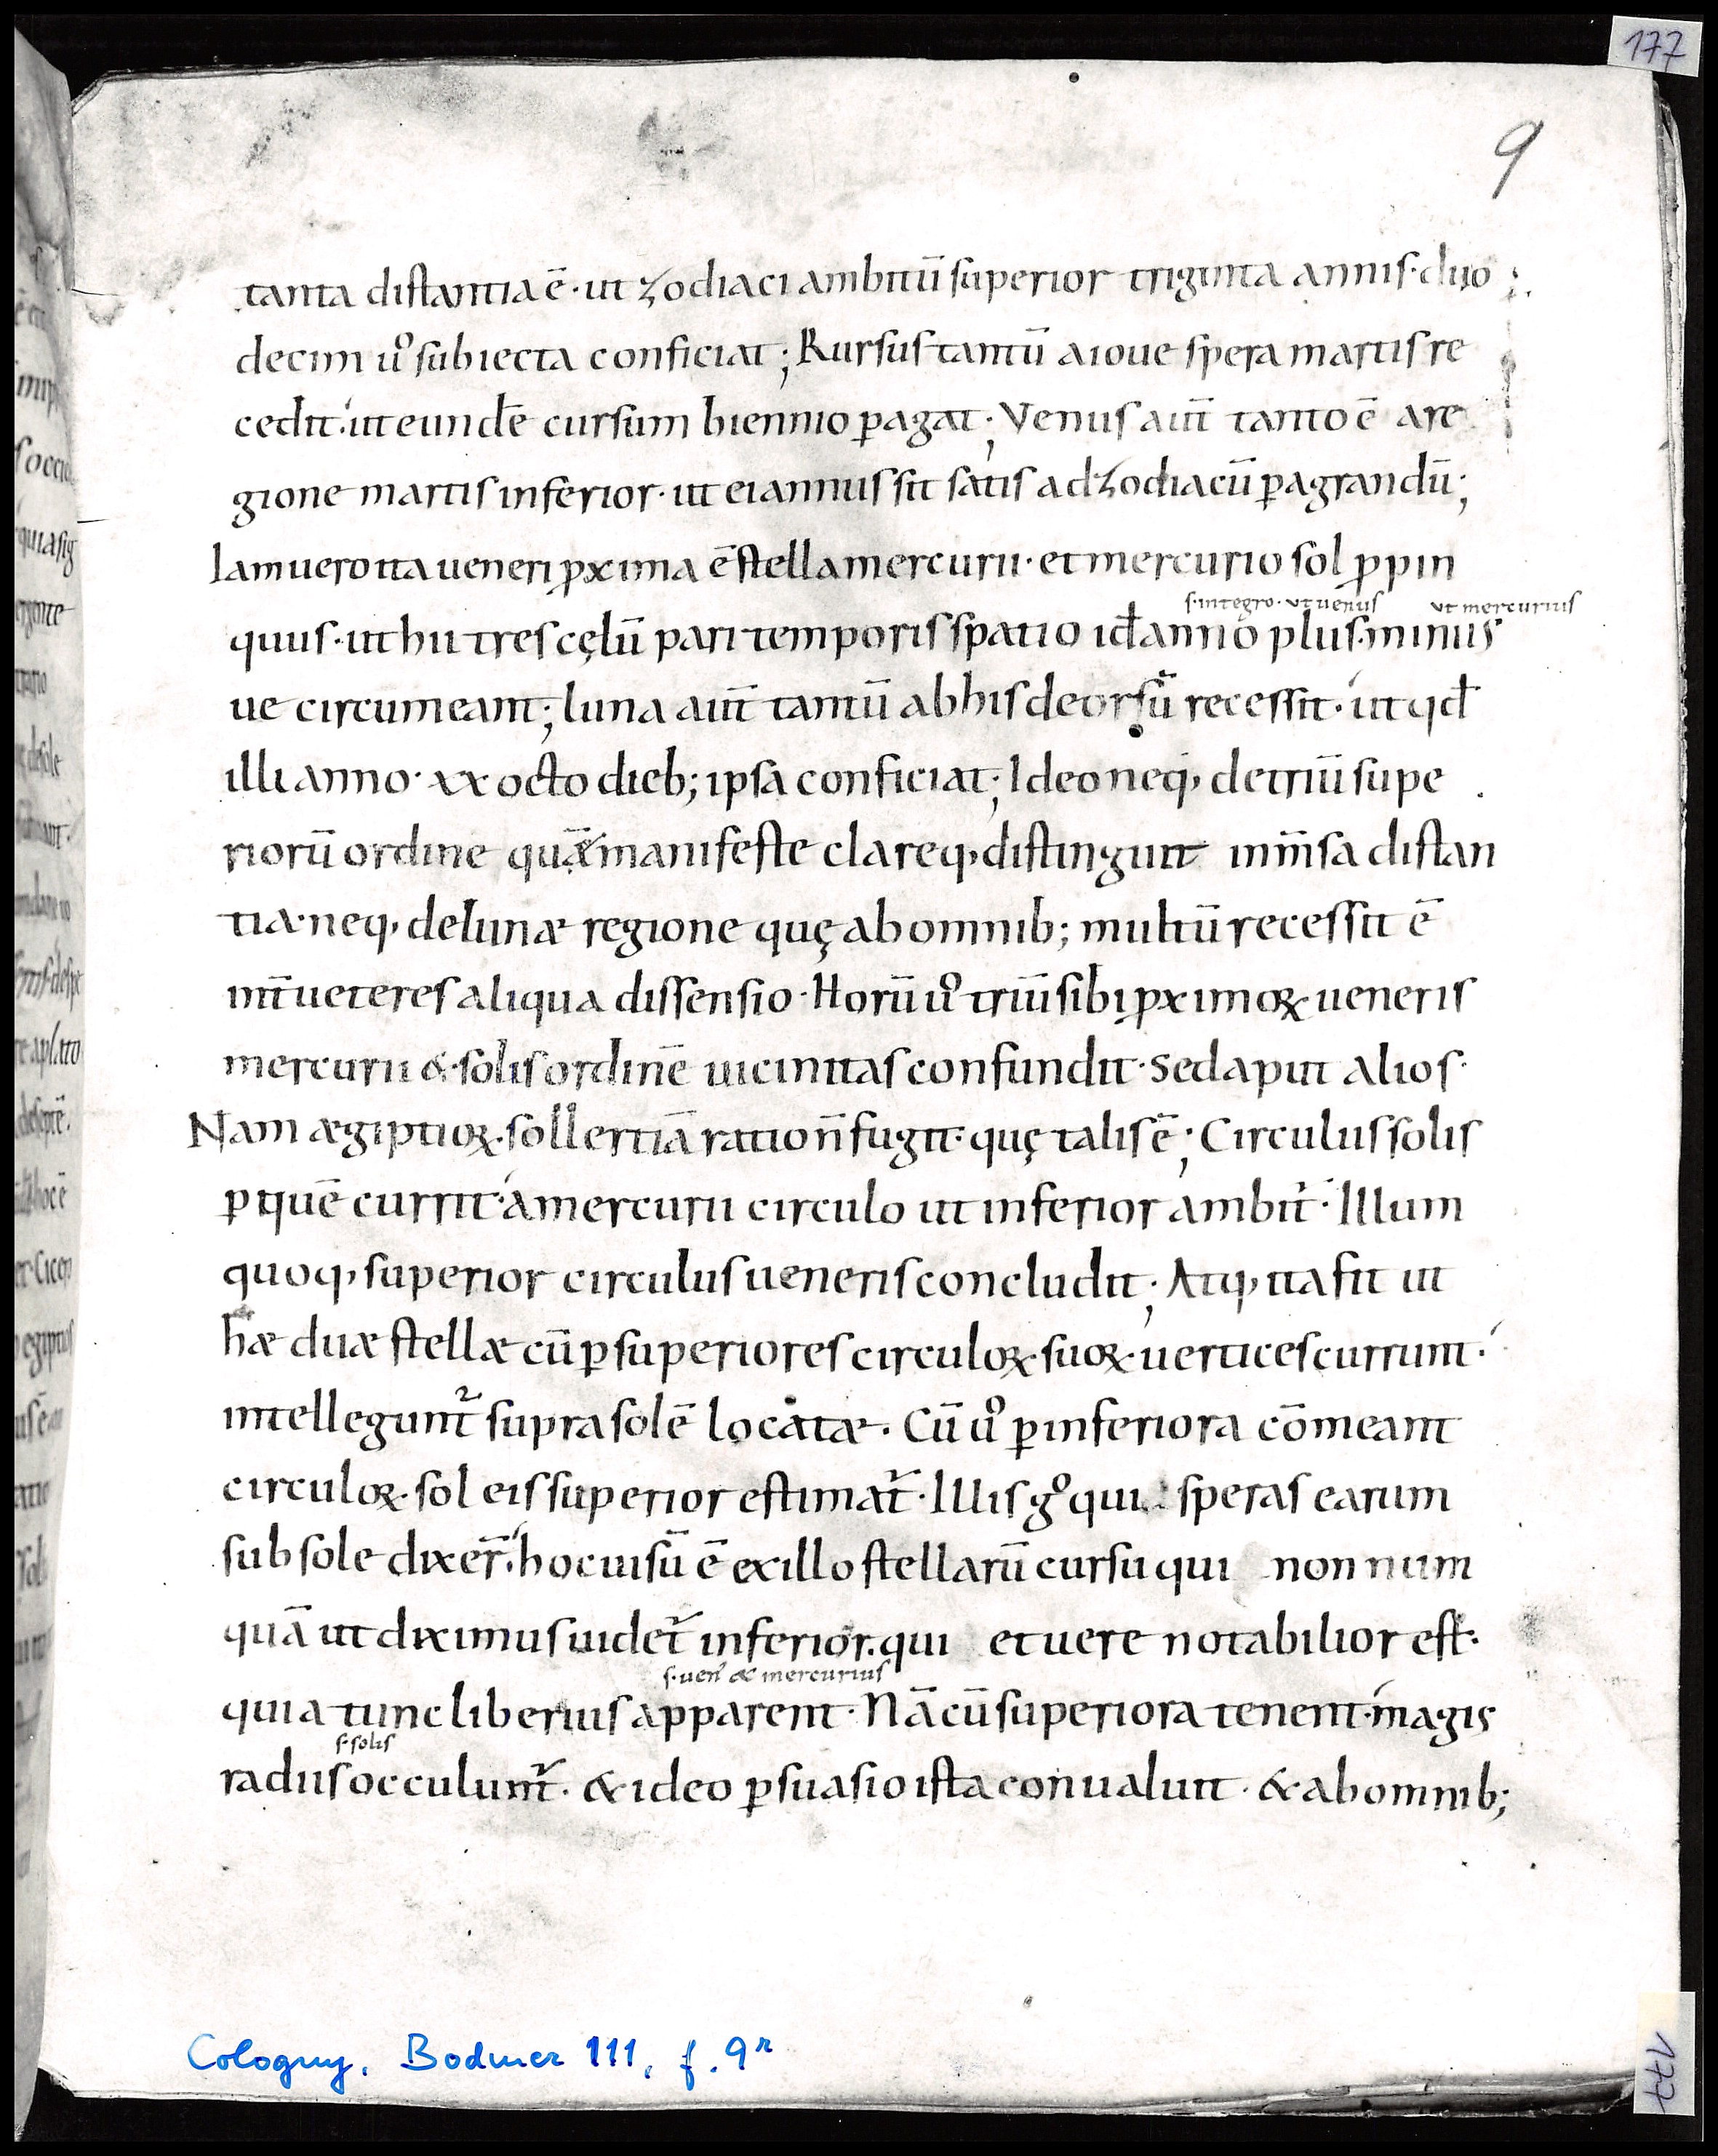 177
9
tanta distantia ē· ut zodiaci ambitū superior triginta annis· duo
decim ůo subiecta conficiat; Rursus tantū a ioue spera martis re
cedit· ut eundē cursum biennio ꝑagat; Venus aut̄ tanto ē a re
gione martis inferior· ut ei annus sit satis ad zodiacū ꝑagrandū;
Iam uero ita ueneri ꝓxima ē stella mercurii· et mercurio sol ꝓpin
s· integro· ut uenus ut mercurius
quus· ut hii tres cęlū pari temporis spatio id ē anno plus minus
ue circumeant; luna aut̄ tantū ab his deorsū recessit· ut qd̄
illi anno· xx octo dieb; ipsa conficiat; Ideo neq, de triū supe
riorū ordine quā manifeste clareq, distinguit inm̄sa distan
tia· neq, de lunæ regione quę ab omnib; multū recessit ē
int̄ ueteres aliqua dissensio· Horū uͦ triū sibi ꝓximoꝝ ueneris
mercurii &· solis ordinē uicinitas confundit· sed aput alios·
Nam ægiptioꝝ· sollertiā ratio n̄ fugit· quę talis ē; Circulus solis
ꝑ quē currit· a mercurii circulo ut inferior ambit᷑· Illum
quoq, superior circulus ueneris concludit; Atq, ita fit ut
hæ duæ stellæ cū ꝑ superiores circuloꝝ· suoꝝ· uertices currunt·
intellegunt᷑ supra solē locatæ· Cū uͦ ꝑ inferiora cōmeant
circuloꝝ· sol eis superior estimat᷑· Illis gͦ qui speras earum
sub sole dixer̄· hoc uisū ē ex illo stellarū cursu qui non num
quā ut diximus uidet᷑ inferior· qui et uere notabilior est·
s· uen᷑ & mercurius
quia tunc liberius apparent· Nā cū superiora tenent· magis
s· solis
radiis occulunt᷑· & ideo ꝑsuasio ista conualuit· & ab omnib;
Cologny, Bodmer 111, f. 9r
177